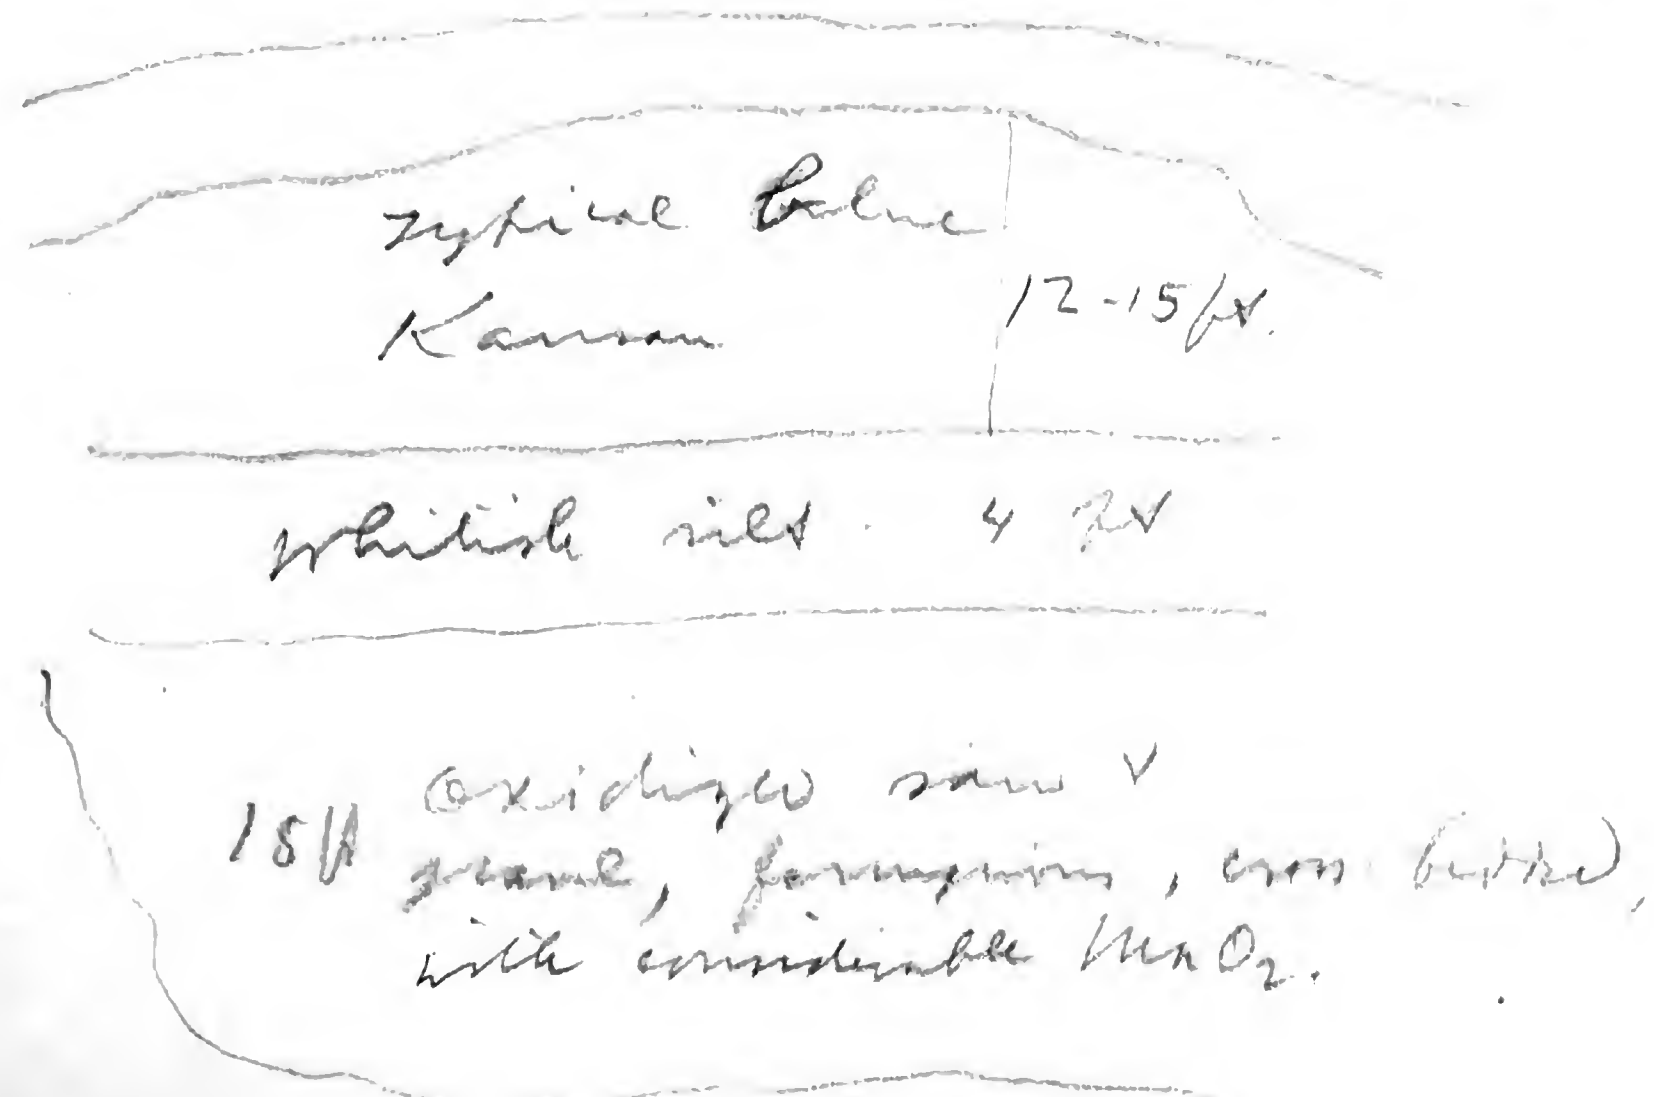 Typical blue
Kansan 12-15 ft.
whitish silt 4 ft
Oxidized sand &
15 ft gravel, ferruginous, cross bedded,
with considerable MnO2.